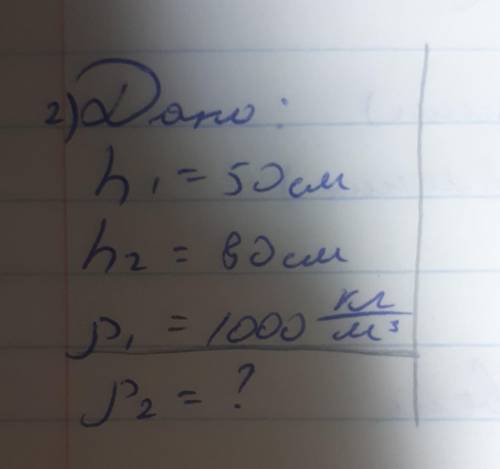 2) Дано:
h₁ = 50 см
h₂ = 80 см
ρ₁ = 1000 кг/м³
ρ₂ = ?